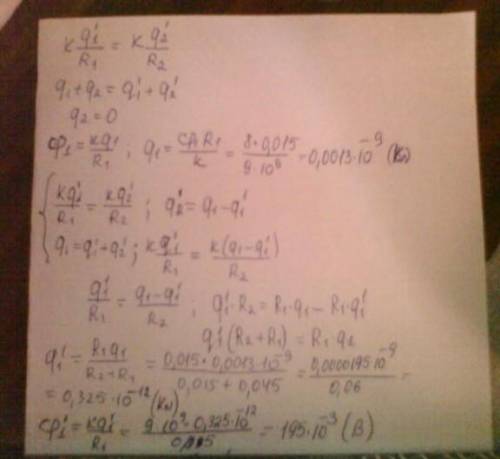 k q₁'/R₁ = k q₂'/R₂
q₁ + q₂ = q₁' + q₂'
q₂ = 0
φ₁ = kq₁/R₁ ; q₁ = φ₁R₁/k = 8·0,015/9·10⁹ = 0,0013·10⁻⁹ (Кл)
kq₁'/R₁ = kq₂'/R₂ ; q₂' = q₁ - q₁'
q₁ = q₁' + q₂' ; k q₁'/R₁ = k(q₁ - q₁')/R₂
q₁'/R₁ = q₁ - q₁'/R₂ ; q₁'·R₂ = R₁·q₁ - R₁·q₁'
q₁'(R₂ + R₁) = R₁·q₂
q₁' = R₁q₁/R₂+R₁ = 0,015·0,0013·10⁻⁹/0,015 + 0,045 = 0,0000195·10⁻⁹/0,06 =
= 0,325·10⁻¹² (Кл)
φ₁' = kq₁'/R₁ = 9·10⁹·0,325·10⁻¹²/0,015 = 195·10⁻³ (В)